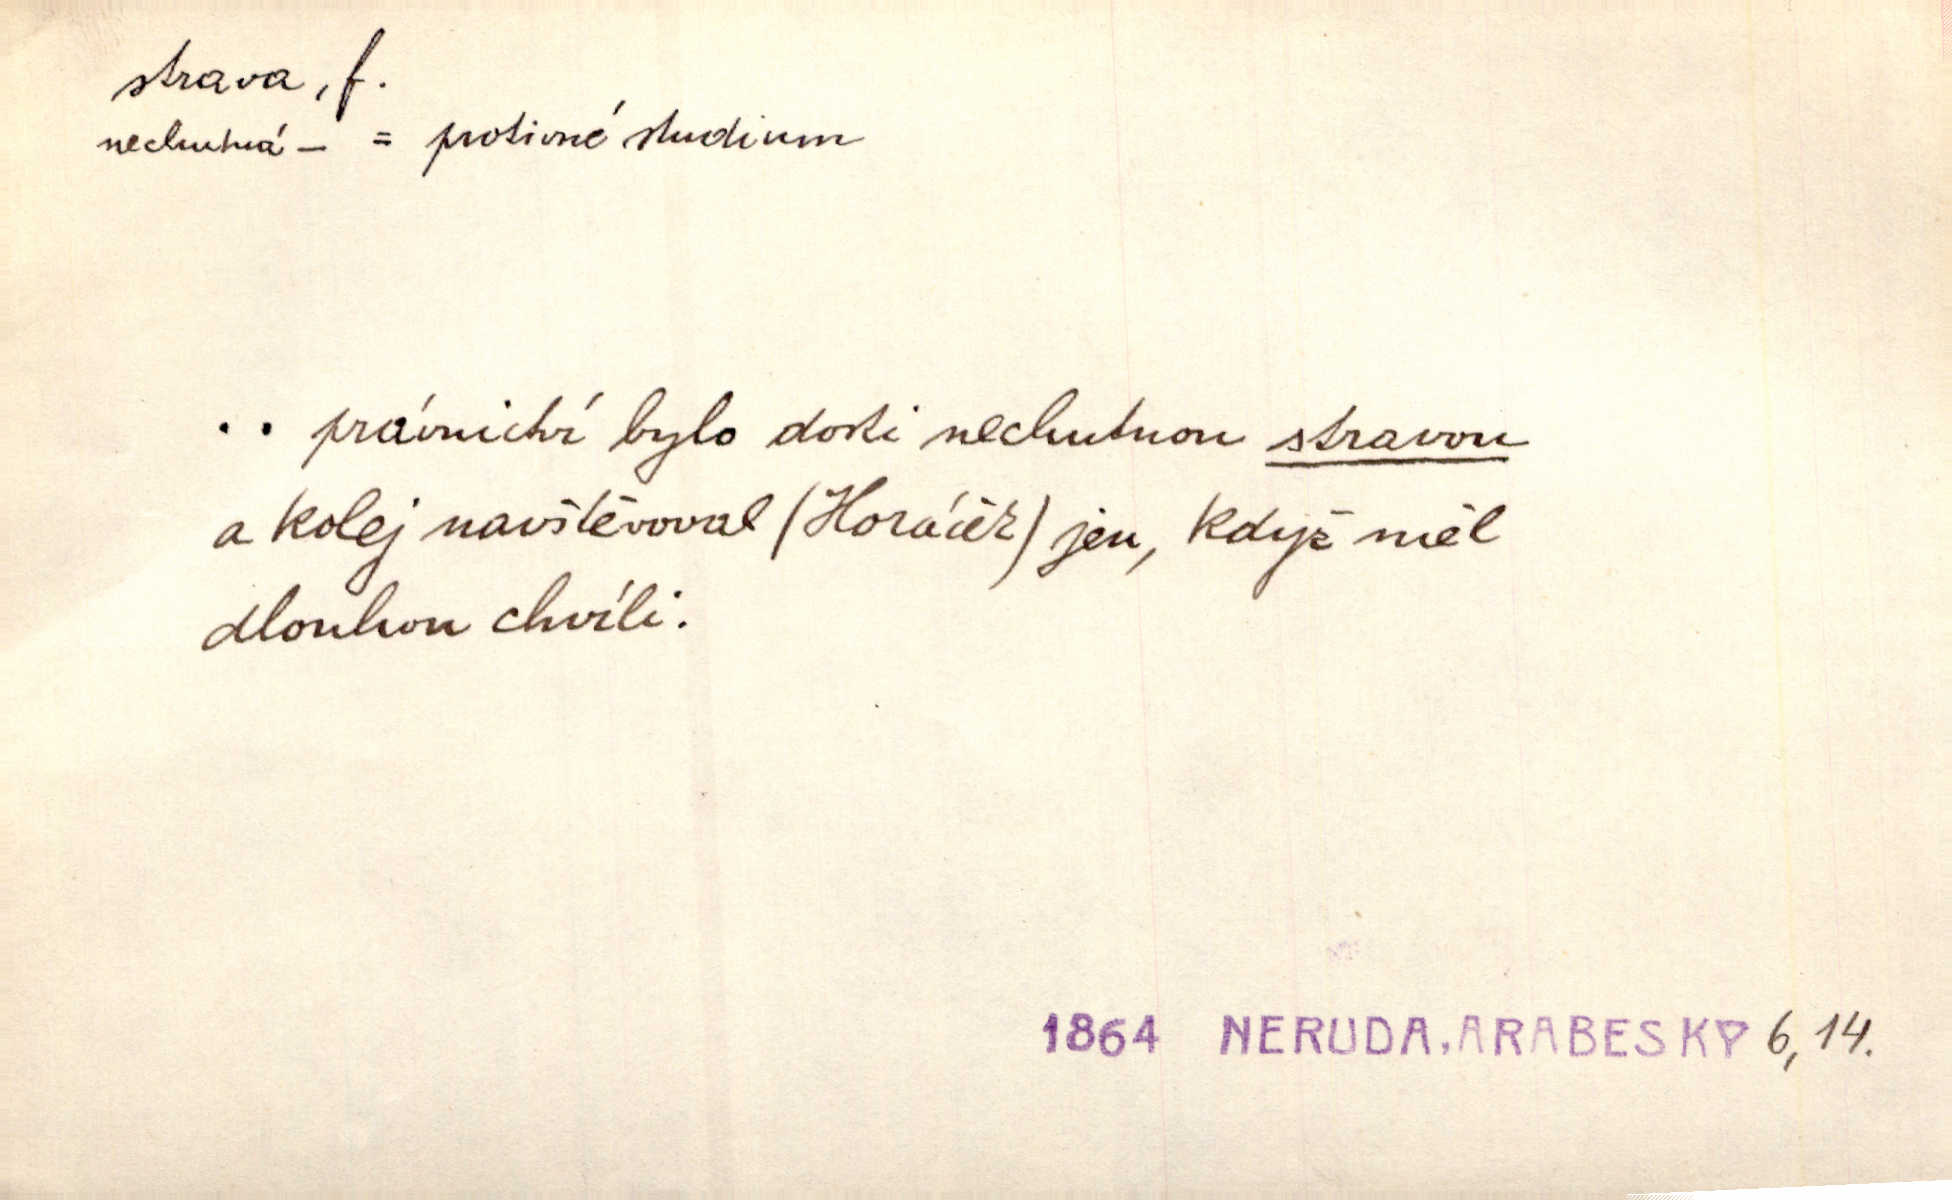 strava, f.
nechutná — = protivné studium
.. právnictví bylo dosti nechutnou stravou
a kolej navštěvoval (Horáček) jen, když měl
dlouhou chvíli.
1864 NERUDA, ARABESKY 6, 14.